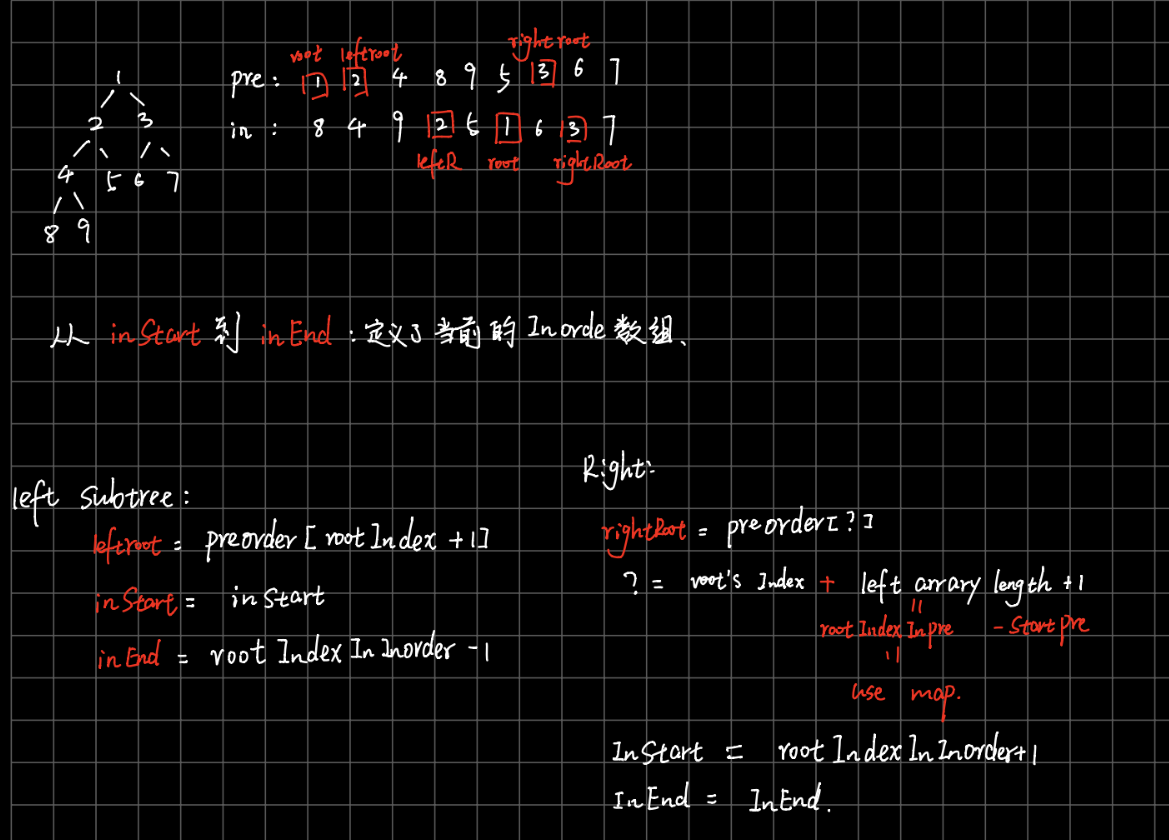 root leftroot rightroot
pre: 1 2 4 8 9 5 3 6 7
in : 8 4 9 2 5 1 6 3 7
leftR root rightRoot
1
2 3
4 5 6 7
8 9
从 inStart 到 inEnd : 定义了当前的 Inorde 数组、
left subtree:
leftroot = preorder [ rootIndex +1]
inStart = inStart
inEnd = root Index In Inorder -1
Right:
rightRoot = preorder[ ? ]
? = root's Index + left arrary length +1
=
root Index Inpre - Startpre
=
use map.
InStart = root Index In Inorder+1
InEnd = InEnd.